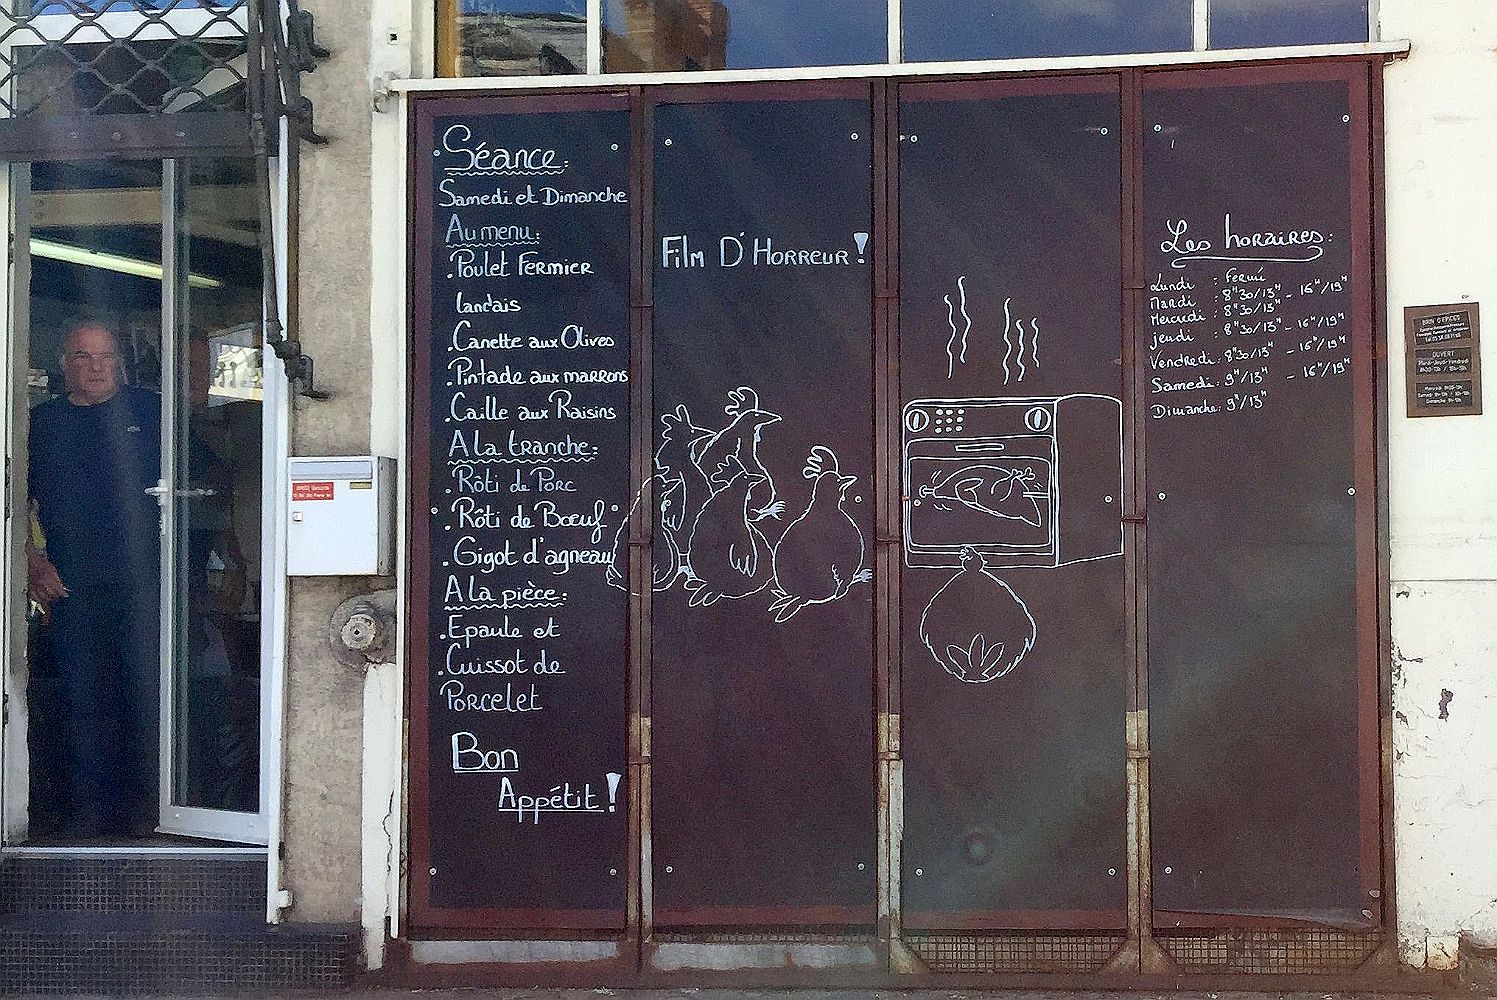 Séance:
Samedi et Dimanche
Au menu:
.Poulet Fermier
landais
.Canette aux Olives
.Pintade aux marrons
.Caille aux Raisins
A La tranche:
.Rôti de Porc
.Rôti de Bœuf
.Gigot d'agneau
A La pièce:
.Epaule et
.Cuissot de
Porcelet
Bon
Appétit!
Film D'Horreur!
Les horaires:
Lundi : Fermé
Mardi : 8H30/13H - 16H/19H
Mercredi : 8H30/13H
jeudi : 8H30/13H - 16H/19H
Vendredi: 8H30/13H - 16H/19H
Samedi: 9H/13H - 16H/19H
Dimanche: 9H/13H
BRIN D'EPICES
OUVERT
Mardi-Jeudi-Vendredi